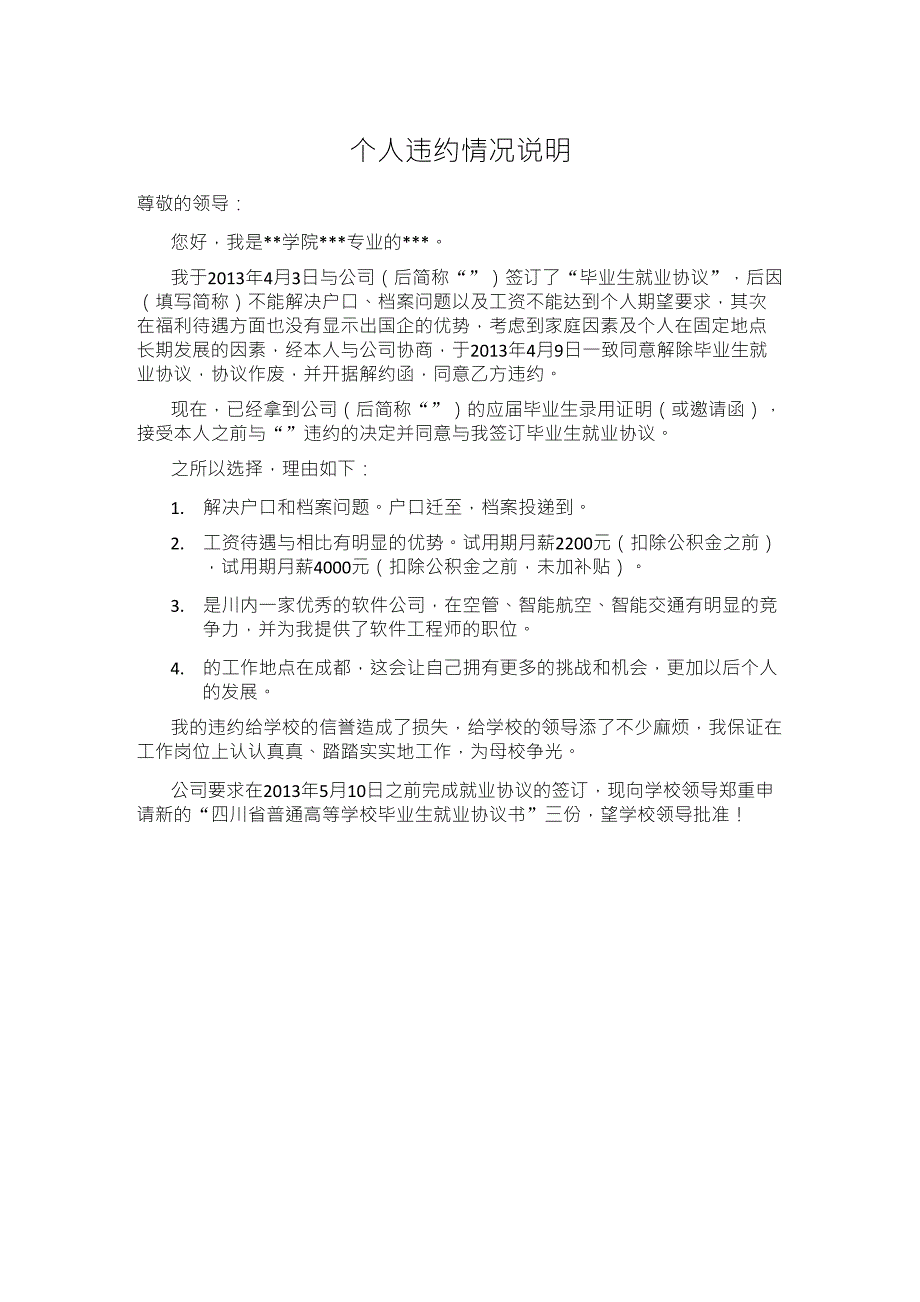 个人违约情况说明
尊敬的领导：
您好，我是**学院***专业的***。
我于2013年4月3日与公司（后简称“”）签订了“毕业生就业协议”，后因
（填写简称）不能解决户口、档案问题以及工资不能达到个人期望要求，其次
在福利待遇方面也没有显示出国企的优势，考虑到家庭因素及个人在固定地点
长期发展的因素，经本人与公司协商，于2013年4月9日一致同意解除毕业生就
业协议，协议作废，并开据解约函，同意乙方违约。
现在，已经拿到公司（后简称“”）的应届毕业生录用证明（或邀请函），
接受本人之前与“”违约的决定并同意与我签订毕业生就业协议。
之所以选择，理由如下：
1. 解决户口和档案问题。户口迁至，档案投递到。
2. 工资待遇与相比有明显的优势。试用期月薪2200元（扣除公积金之前）
，试用期月薪4000元（扣除公积金之前，未加补贴）。
3. 是川内一家优秀的软件公司，在空管、智能航空、智能交通有明显的竞
争力，并为我提供了软件工程师的职位。
4. 的工作地点在成都，这会让自己拥有更多的挑战和机会，更加以后个人
的发展。
我的违约给学校的信誉造成了损失，给学校的领导添了不少麻烦，我保证在
工作岗位上认认真真、踏踏实实地工作，为母校争光。
公司要求在2013年5月10日之前完成就业协议的签订，现向学校领导郑重申
请新的“四川省普通高等学校毕业生就业协议书”三份，望学校领导批准！